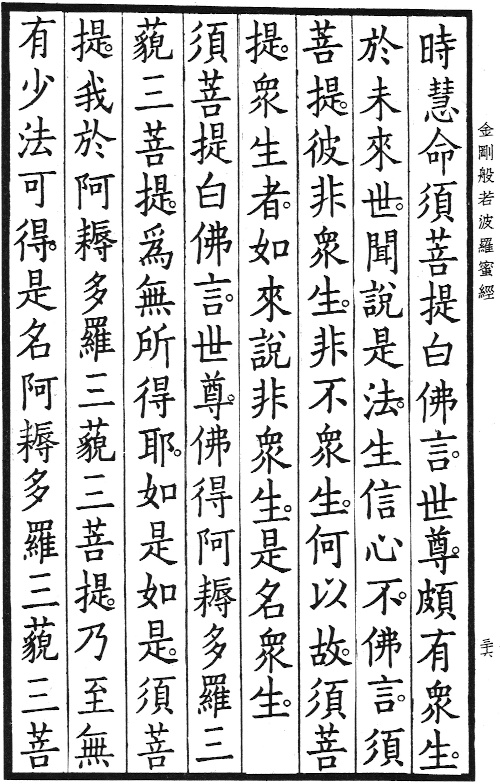 金剛般若波羅蜜經
三六
時慧命須菩提白佛言。世尊。頗有衆生。
於未來世。聞說是法。生信心不。佛言。須
菩提。彼非衆生。非不衆生。何以故。須菩
提。衆生者。如來說非衆生。是名衆生。
須菩提白佛言。世尊。佛得阿耨多羅三
藐三菩提。爲無所得耶。如是如是。須菩
提。我於阿耨多羅三藐三菩提。乃至無
有少法可得。是名阿耨多羅三藐三菩